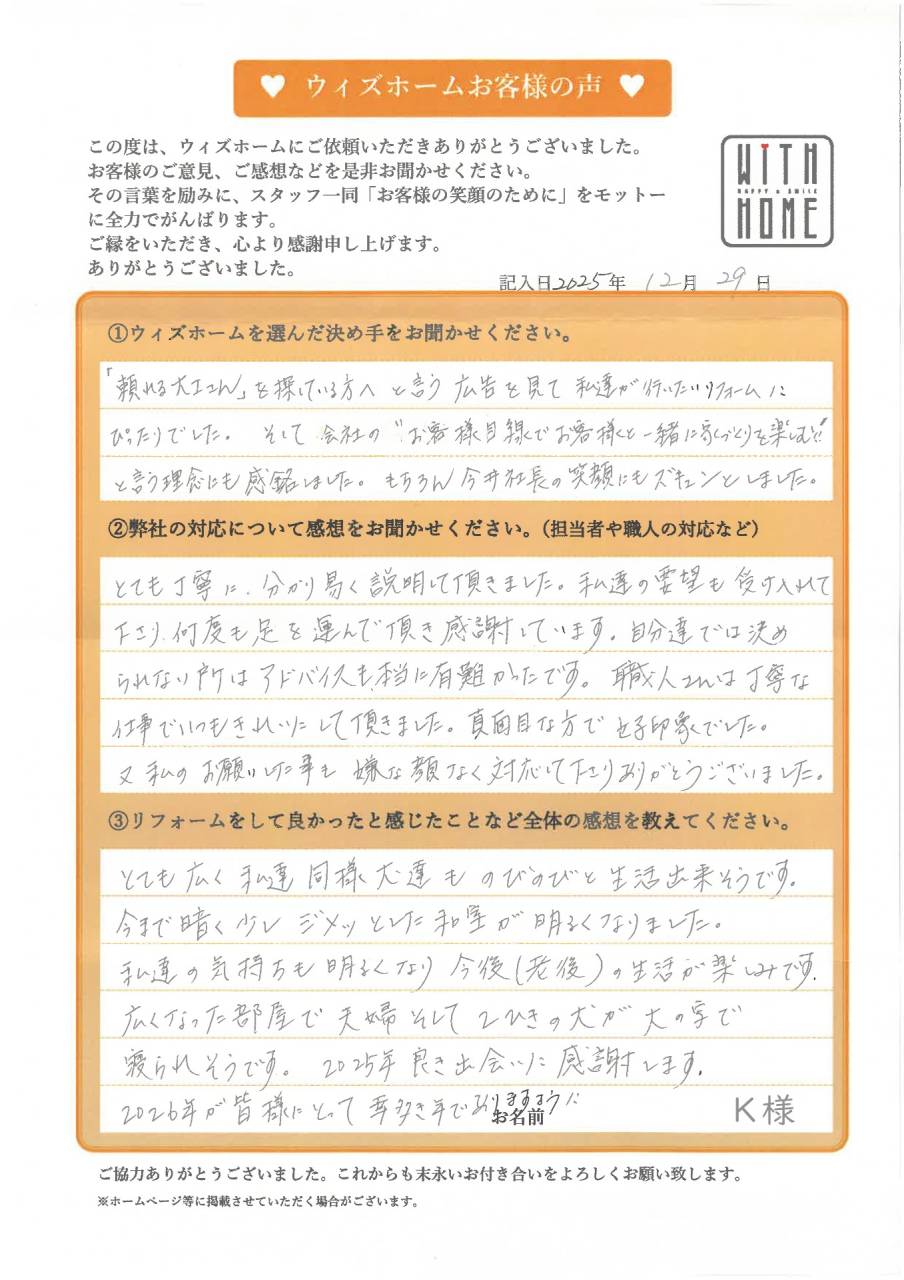 ♥ ウィズホームお客様の声 ♥
この度は、ウィズホームにご依頼いただきありがとうございました。
お客様のご意見、ご感想などを是非お聞かせください。
その言葉を励みに、スタッフ一同「お客様の笑顔のために」をモットー
に全力でがんばります。
ご縁をいただき、心より感謝申し上げます。
ありがとうございました。
WiTH
HAPPY & SMILE
HOME
記入日2025年 12月 29日
①ウィズホームを選んだ決め手をお聞かせください。
「頼れる大工さん」を探している方へ と言う 広告を見て 私達が行いたいリフォームに
ぴったりでした。 そして 会社の "お客様目線でお客様と一緒に家づくりを楽しむ!"
と言う理念にも感銘しました。もちろん今井社長の笑顔にもズキュンとしました。
②弊社の対応について感想をお聞かせください。(担当者や職人の対応など)
とても丁寧に、分かり易く説明して頂きました。私達の要望も受け入れて
下さり、何度も足を運んで頂き感謝しています。自分達では決め
られない所はアドバイスも、本当に有難かったです。職人さんは丁寧な
仕事でいつもきれいにして頂きました。真面目な方で好印象でした。
又私のお願いした事も嫌な顔なく対応して下さりありがとうございました。
③リフォームをして良かったと感じたことなど全体の感想を教えてください。
とても広く私達同様犬達ものびのびと生活出来そうです。
今まで暗く少しジメッとした和室が明るくなりました。
私達の気持ちも明るくなり今後(老後)の生活が楽しみです。
広くなった部屋で夫婦そして2ひきの犬が大の字で
寝られそうです。 2025年良き出会いに感謝します。
2026年が皆様にとって幸多き年でありますように
お名前 K様
ご協力ありがとうございました。これからも末永いお付き合いをよろしくお願い致します。
※ホームページ等に掲載させていただく場合がございます。